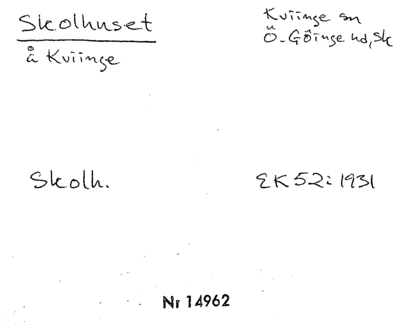 Skolhuset
å Kviinge
Kviinge sn
Ö. Göinge hd, Sk
Skolh.
EK 52: 1931
Nr 14962